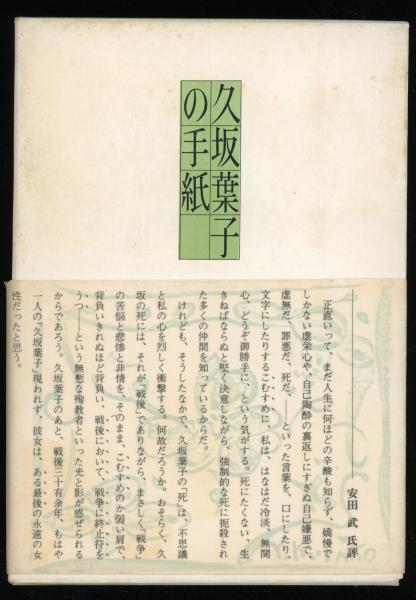 久坂葉子
の手紙
――安田 武 氏評
正直いって、まだ人生に何ほどの辛酸も知らず、嬌慢で
しかない虚栄心や、自己陶酔の裏返しにすぎぬ自己嫌悪で、
虚無だ、罪悪だ、死だ、――といった言葉を、口にしたり、
文字にしたりするこむすめに、私は、はなはだ冷淡、無関
心、どうぞ御勝手に、という気がする。死にたくない、生
きねばならぬと堅く決意しながら、強制的な死に扼殺され
た多くの仲間を知っているからだ。
けれども、そうしたなかで、久坂葉子の「死」は、不思議
と私の心を烈しく衝撃する。何故だろうか。おそらく、久
坂の死には、それが「戦後」でありながら、まさしく「戦争」
の苦悩と悲惨と非情を、そのまま、こむすめのか弱い肩で、
背負いきれぬほど背負い、戦後において、戦争に終止符を
うつ――という無慙な殉教者といった光と影が感ぜられる
からであろう。久坂葉子のあと、戦後三十有余年、もはや
一人の「久坂葉子」現われず、彼女は、ある最後の永遠の女
性だったと思う。